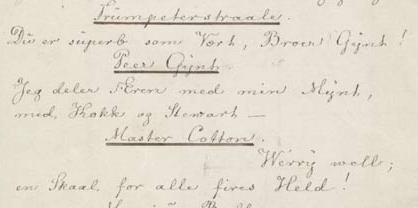 Trumpeterstraale.
Du er superb som Vært, Broer Gÿnt!
Peer Gÿnt.
Jeg deler Æren med min Mÿnt,
med Kokk og Stewart —
Master Cotton.
Werrÿ well;
en Skaal for alle fires Held!